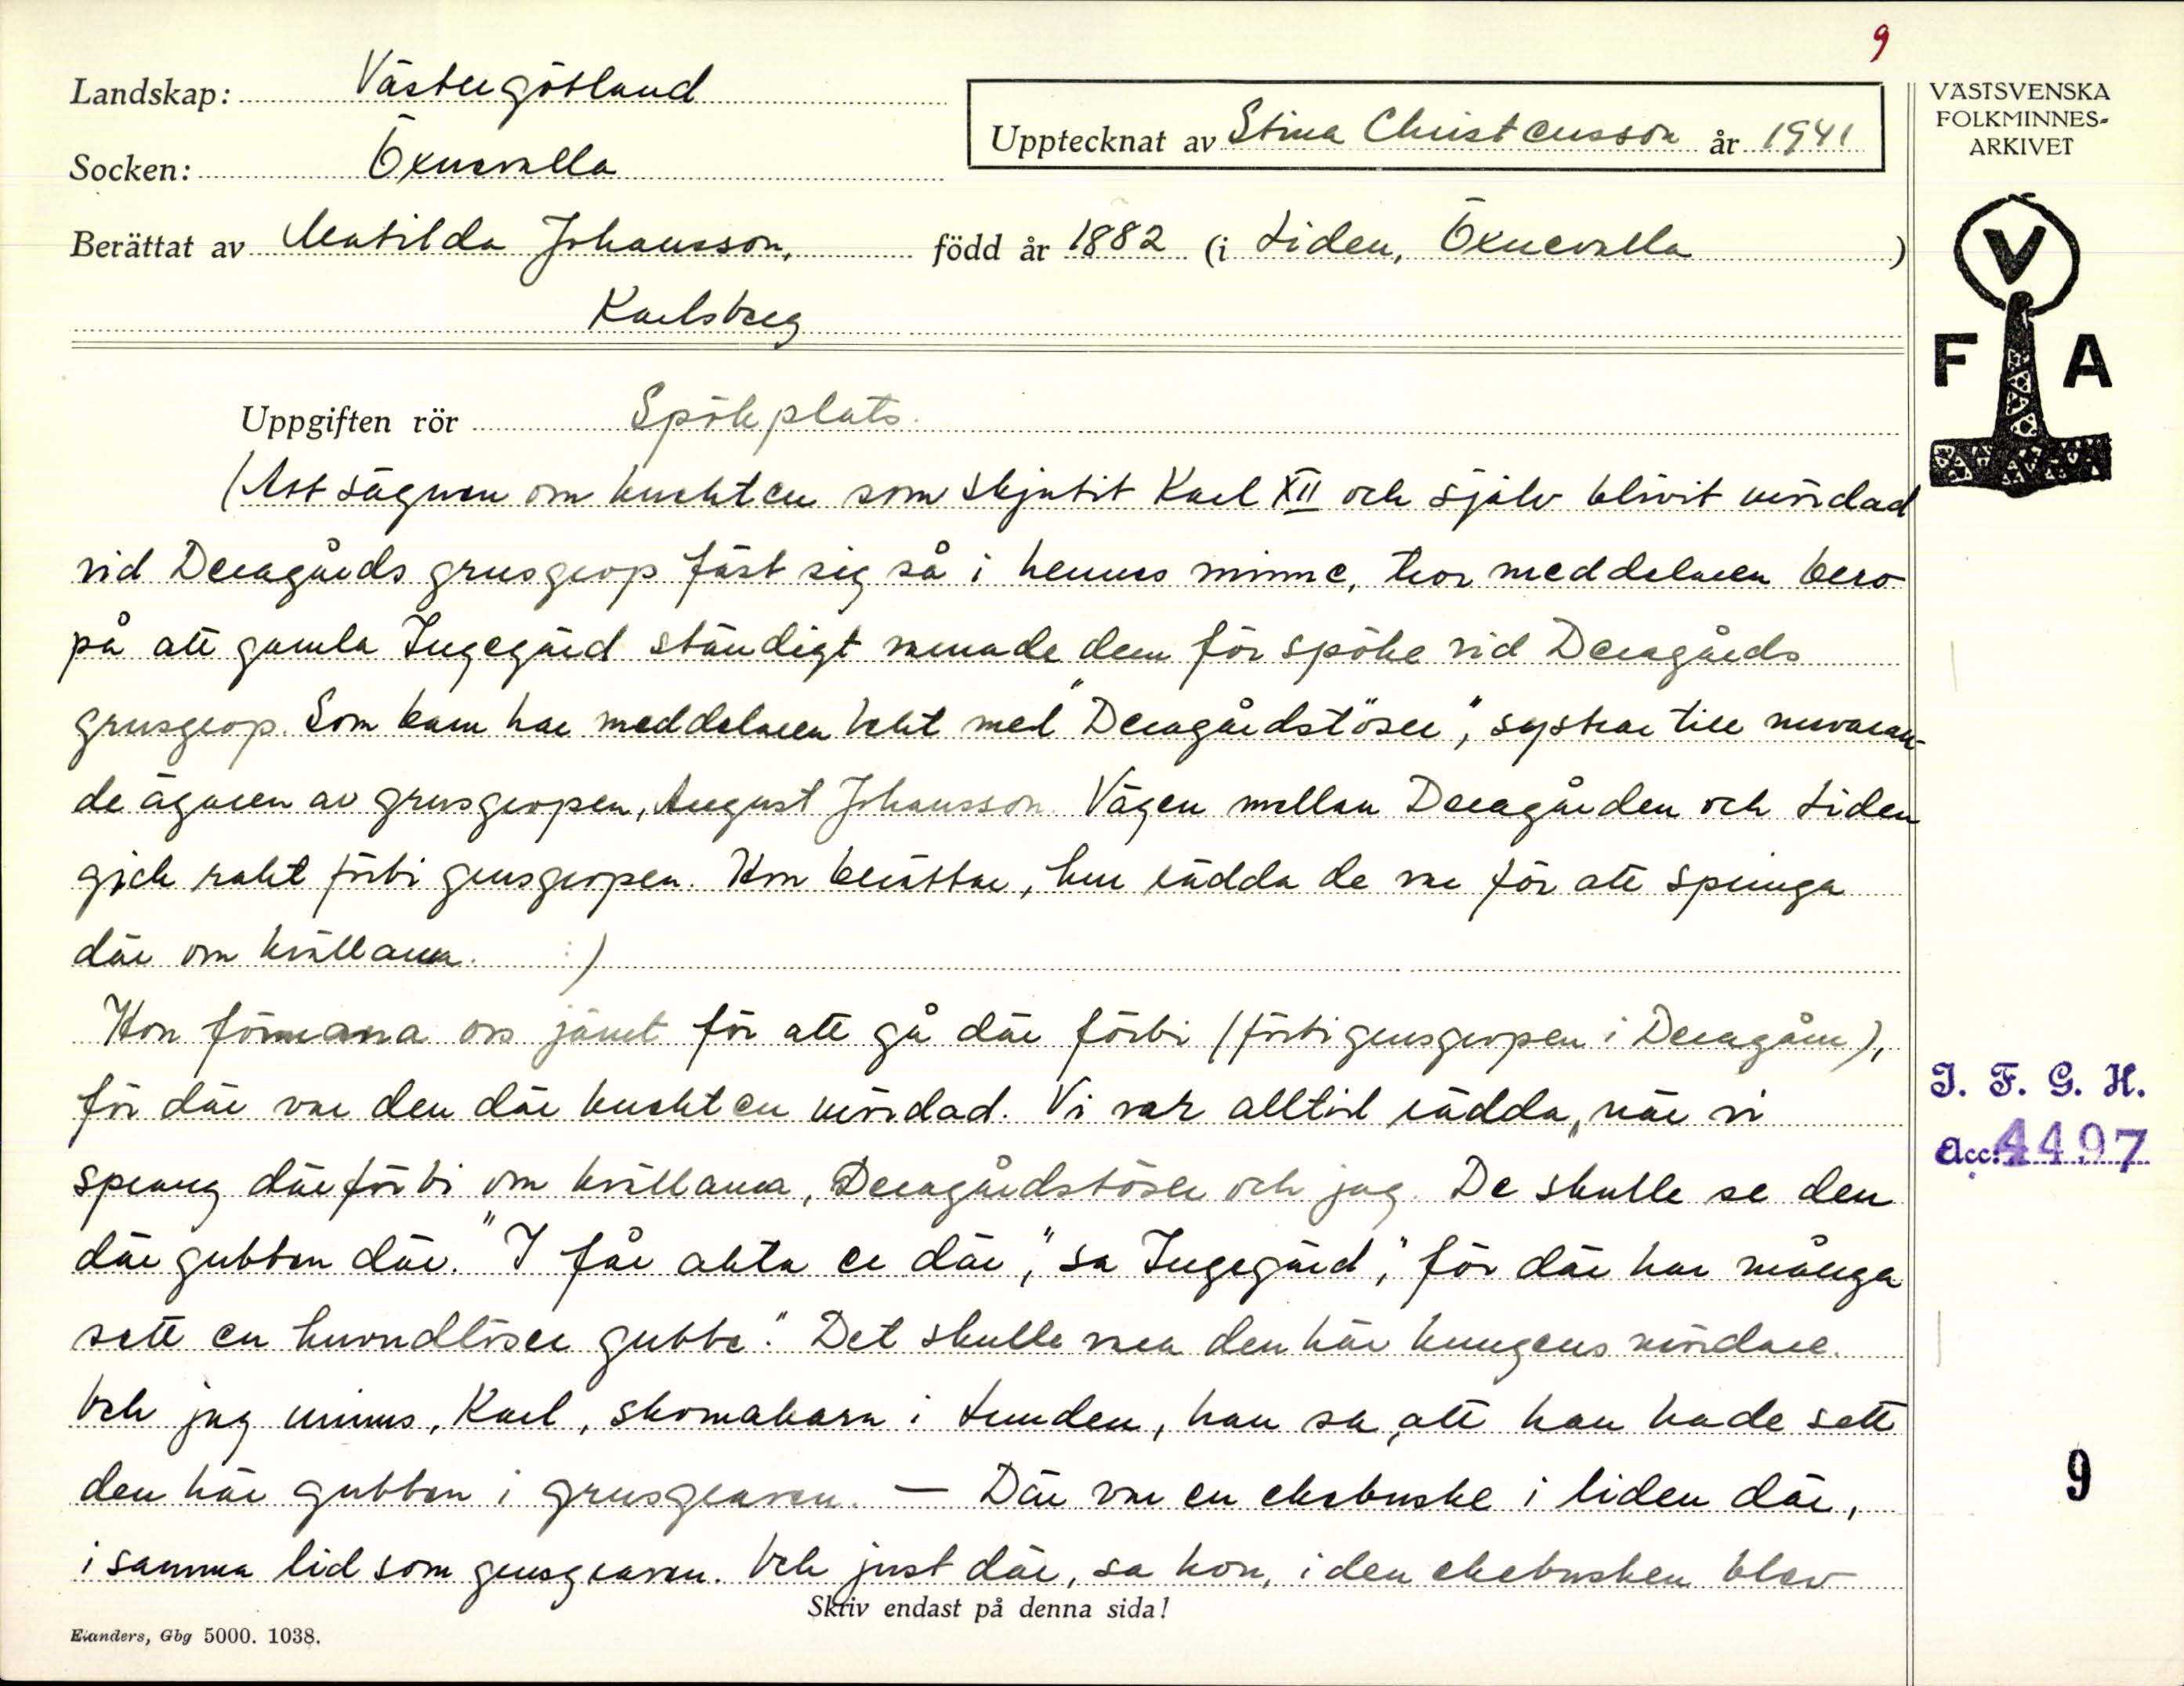 9
Landskap: Västergötland
Upptecknat av Stina Christensson år 1941
VÄSTSVENSKA
FOLKMINNES-
ARKIVET
Socken: Öxnevalla
Berättat av Matilda Johansson, född år 1882 (i Liden, Öxnevalla)
Karlsberg
V
F A
Uppgiften rör Spökplats.
(Att sägnen om knekten som skjutit Karl XII och själv blivit mördad
vid Deragårds grusgrop fäst sig så i hennes minne, tror meddelaren bero
på att gamla Ingegärd ständigt varnade dem för spöke vid Deragårds
grusgrop. Som barn har meddelaren lekt med "Deragårdstöser", systrar till nuvaran-
de ägaren av grusgropen, August Johansson. Vägen mellan Deragården och Liden
gick rakt förbi grusgropen. Hon berättar, hur rädda de var för att springa
där om kvällarna. :)
Hon förmana oss jämt för att gå där förbi (förbi grusgropen i Deragårn),
för där var den där knekten mördad. Vi var alltid rädda, när vi
sprang där förbi om kvällarna, Deragårdstöser och jag. De skulle se den
där gubben där. "I får akta er där", sa Ingegärd, "för där har många
sett en huvudlöser gubbe." Det skulle vara den här kungens mördare.
Och jag minns, Karl, skomakarn i Lunden, han sa, att han hade sett
den här gubben i grusgraven. — Där var en ekebuske i liden där,
i samma lid som grusgraven. Och just där, sa hon, i den ekebusken blev
I. F. G. H.
Acc. 4497
9
Skriv endast på denna sida!
Elanders, Gbg 5000. 1038.